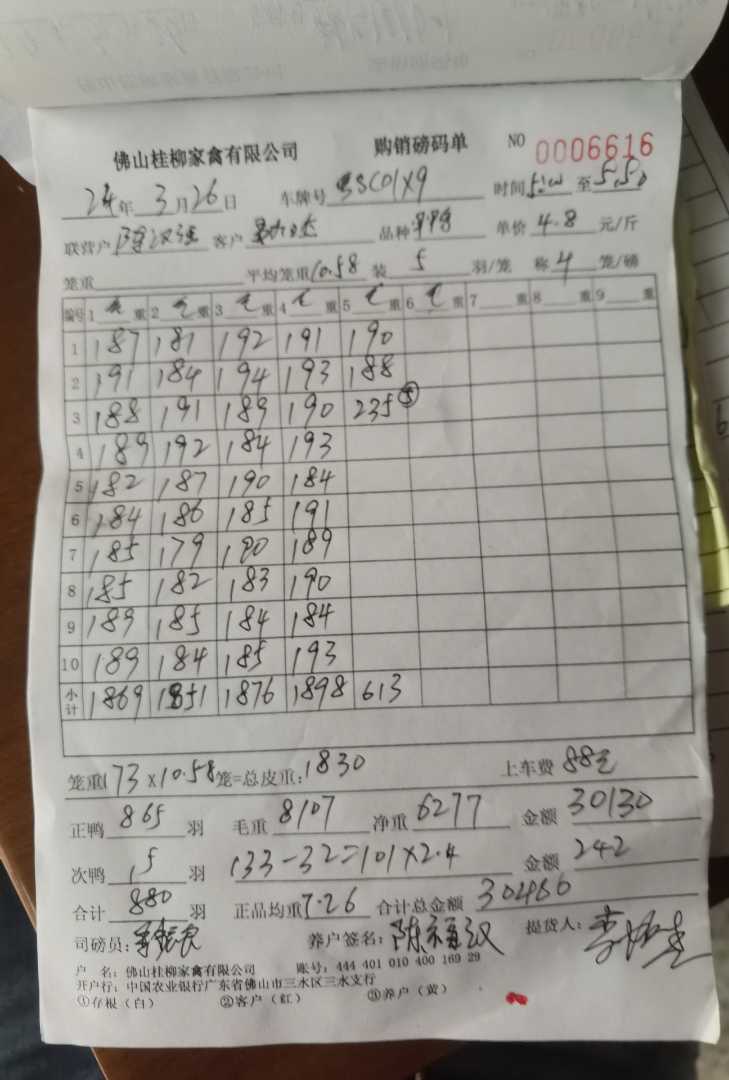 佛山桂柳家禽有限公司 购销磅码单 NO 0006616
24年 3月26日 车牌号 时间5:00至5.50
联营户 客户 品种 单价 4.8 元/斤
笼重 平均笼重10.58 装 5 羽/笼 称 4 笼/磅
编号 1 重 2 重 3 重 4 重 5 重 6 重 7 重 8 重 9 重
1 187 181 192 191 190
2 191 184 194 193 188
3 188 191 189 190 235 ⑤
4 189 192 184 193
5 182 187 190 184
6 184 186 185 191
7 185 179 190 189
8 185 182 183 190
9 189 185 184 184
10 189 184 185 193
小计 1869 1851 1876 1898 613
笼重173×10.58笼=总皮重:1830 上车费 88元
正鸭 865 羽 毛重 8107 净重 6277 金额 30130
次鸭 15 羽 133-32=101×2.4 金额 242
合计 880 羽 正品均重7.26 合计总金额 30460
司磅员: 养户签名: 陈福汉 提货人:
户 名: 佛山桂柳家禽有限公司 账号: 444 401 010 400 169 29
开户行: 中国农业银行广东省佛山市三水区三水支行
①存根(白) ②客户(红) ③养户(黄)